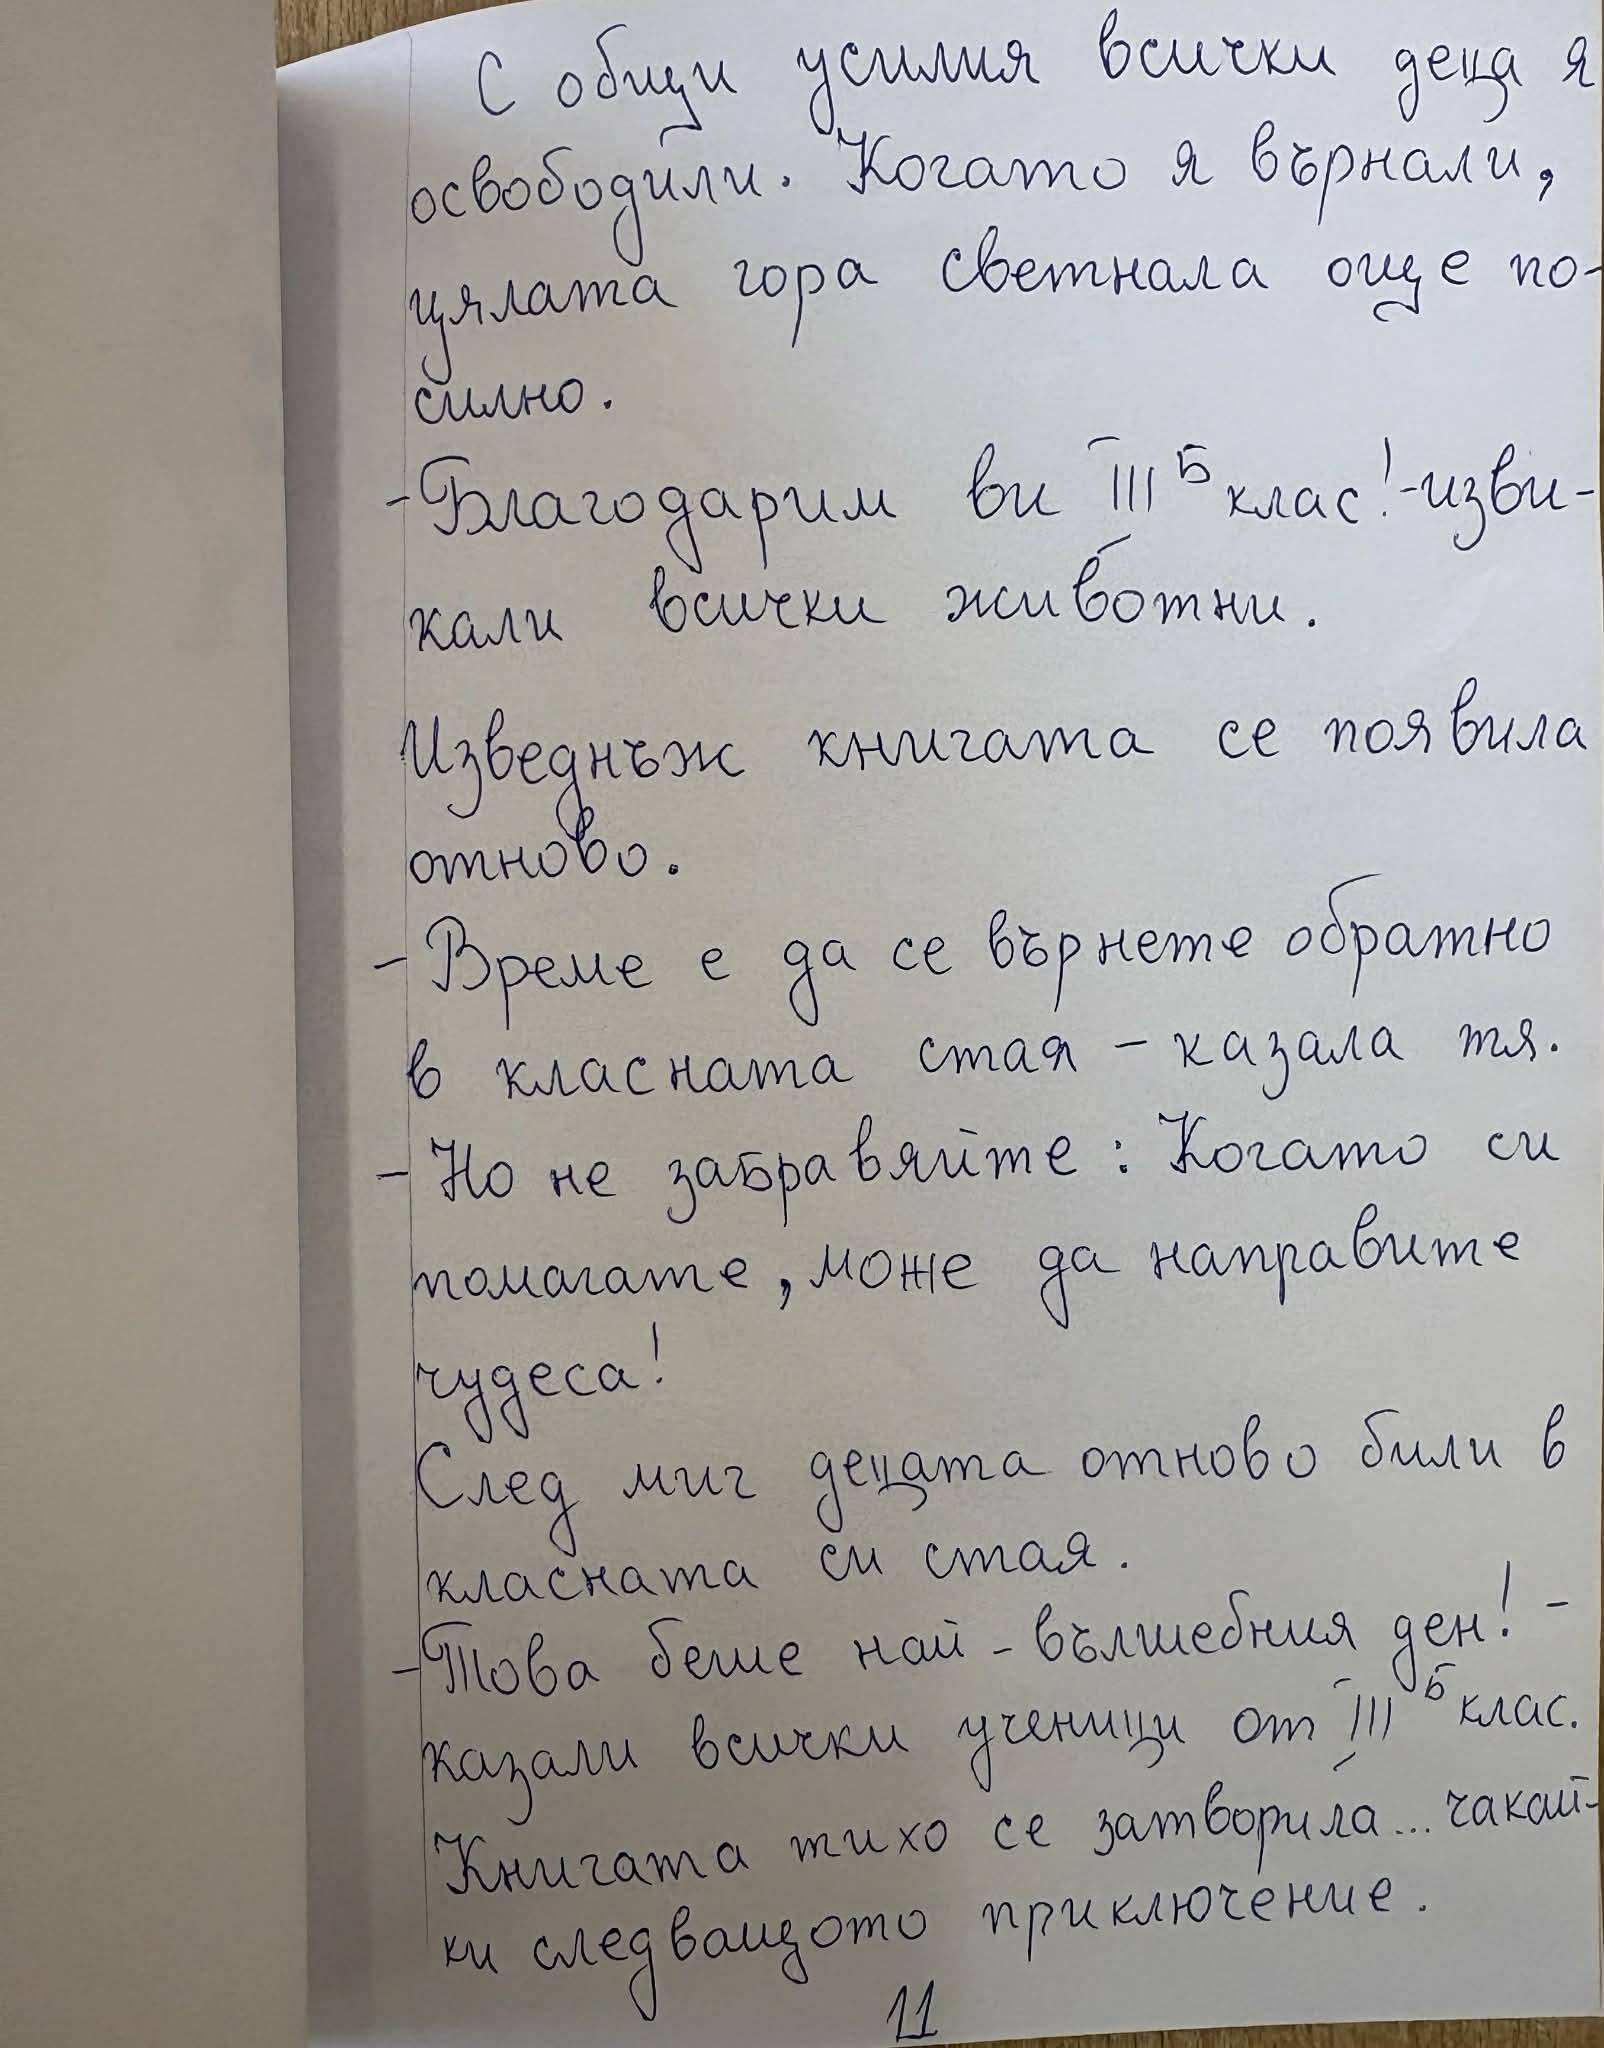 С общи усилия всички деца я
освободили. Когато я върнали,
цялата гора светнала още по-
силно.
- Благодарим ви III Б клас! - изви-
кали всички животни.
Изведнъж книгата се появила
отново.
- Време е да се върнете обратно
в класната стая - казала тя.
- Но не забравяйте: Когато си
помагате, може да направите
чудеса!
След миг децата отново били в
класната си стая.
- Това беше най-вълшебния ден! -
казали всички ученици от III Б клас.
Книгата тихо се затворила... чакай-
ки следващото приключение.
11